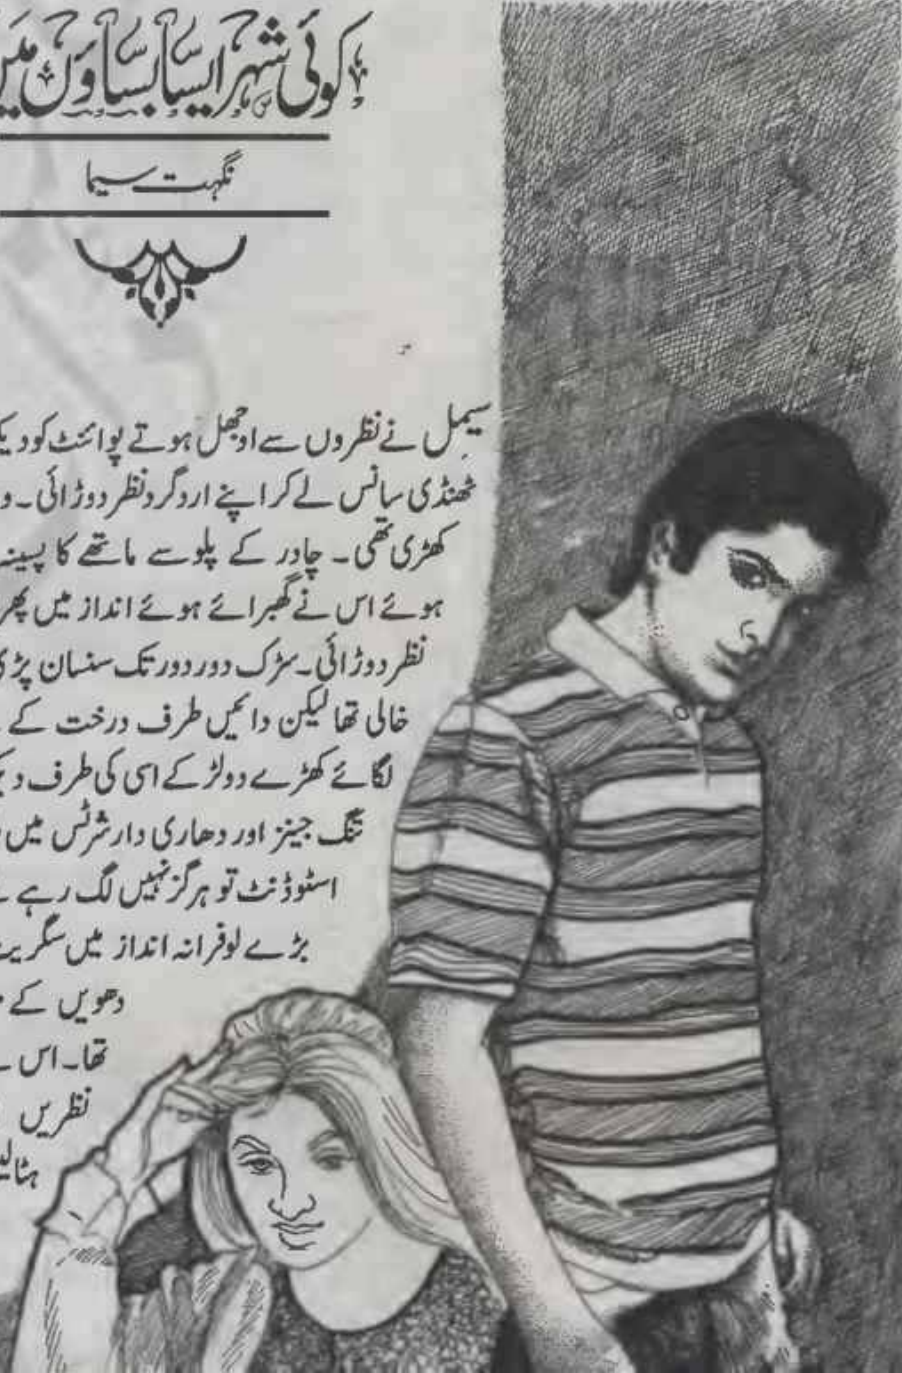 کوئی شہر ایسا بساؤں میں
نگہت سیما
سیمل نے نظروں سے اوجھل ہوتے پوائنٹ کو
ٹھنڈی سانس لے کر اپنے اردگرد نظر دوڑائی۔
کھڑی تھی۔ چادر کے پلو سے ماتھے کا پسینہ
ہوئے اس نے گھبرائے ہوئے انداز میں پھر
نظر دوڑائی۔ سڑک دور دور تک سنسان
خالی تھا لیکن دائیں طرف درخت کے
لگائے کھڑے دو لڑکے اسی کی طرف
تنگ جینز اور دھاری دار شرٹس میں
اسٹوڈنٹ تو ہرگز نہیں لگ رہے
بڑے لوفرانہ انداز میں
دھویں کے
تھا۔ اس
نظریں